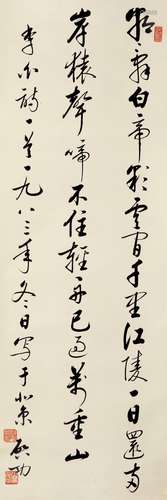 朝辞白帝彩云间千里江陵一日还两
岸猿声啼不住轻舟已过万重山
李白诗一首一九八三年冬日写于北京启功